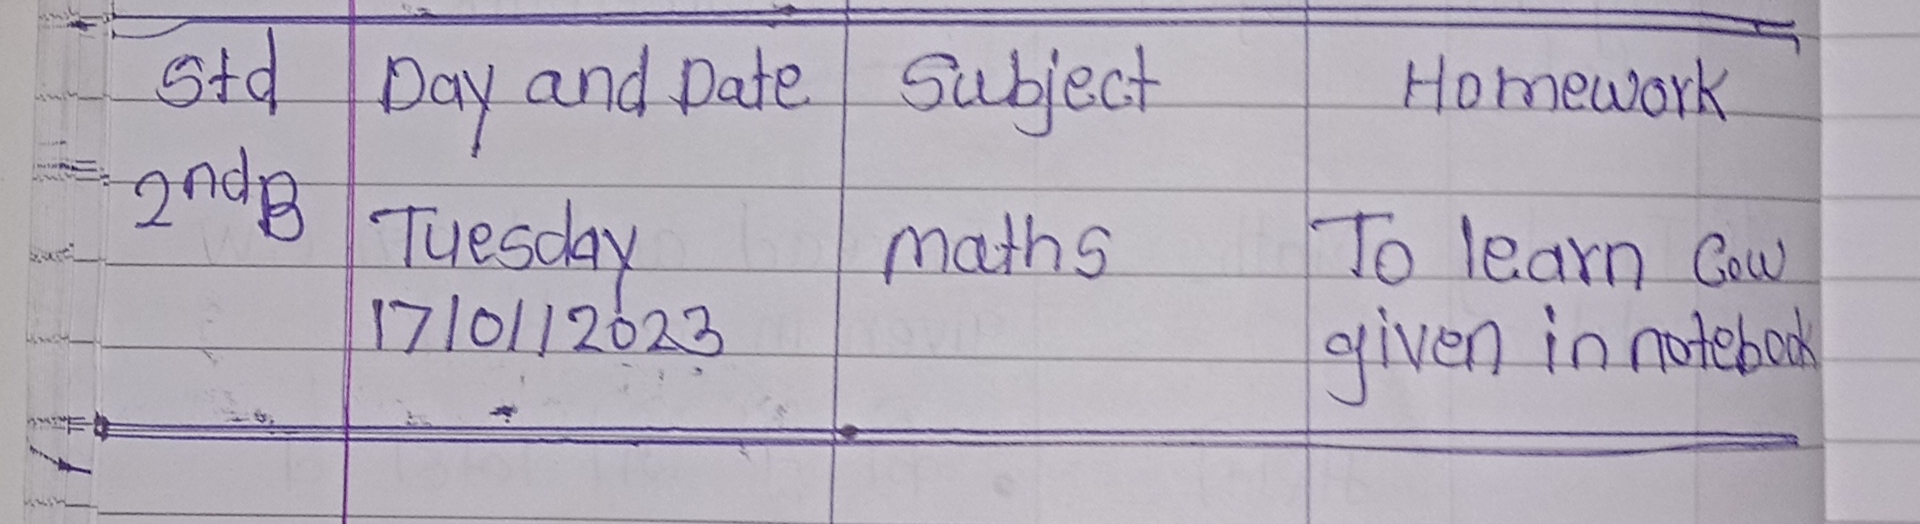 Std Day and Date Subject Homework
2nd B Tuesday maths To learn C.w
17/01/2023 given in notebook